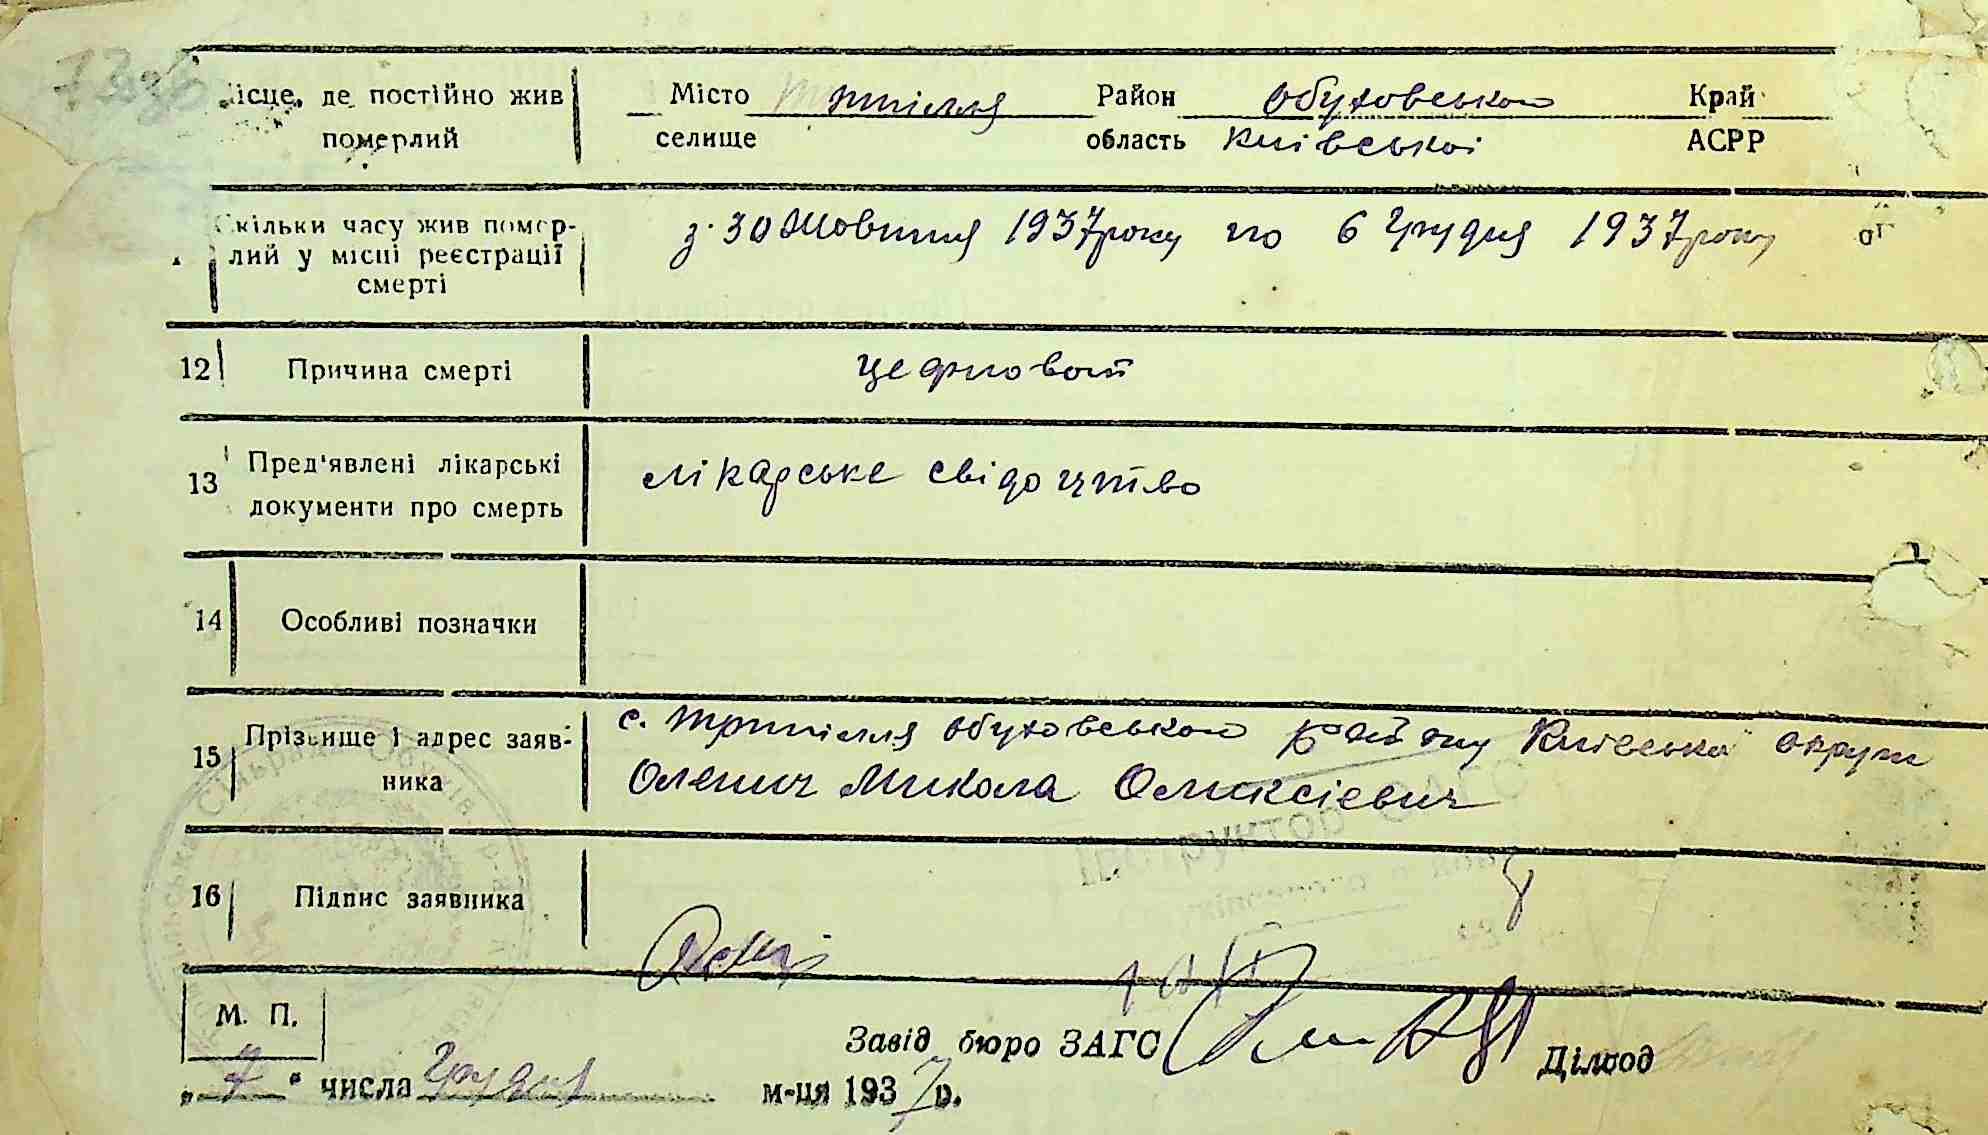 Місце, де постійно жив Місто Трипілля Район Обуховського Край
померлий селище область Київської АСРР
Скільки часу жив помер-
лий у місці реєстрації
смерті
з 30 Жовтня 1937 року по 6 Грудня 1937 року
12 Причина смерті
13 Пред'явлені лікарські
документи про смерть
лікарське свідоцтво
14 Особливі позначки
15 Прізвище і адрес заяв-
ника
с. Трипілля Обуховського району Київської округи
Оленич Микола Оликсієвич
16 Підпис заявника
Інструктор ЗАГС
М. П.
Завід бюро ЗАГС
Діловод
„ 7 “ числа Грудня м-ця 1937 р.